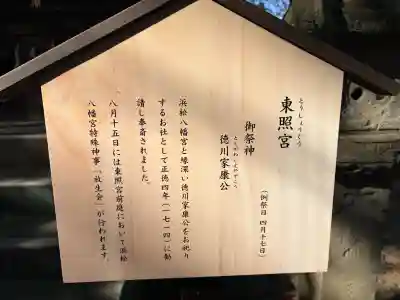 とうしょうぐう
東照宮
(例祭日 四月十七日)
御祭神
徳川家康公
とくがわいえやすこう
浜松八幡宮と縁深い徳川家康公をお祀り
するお社として正徳四年(一七一四)に勧
請し奉斎されました。
八月十五日には東照宮前庭において浜松
八幡宮特殊神事「放生会」が行われます。